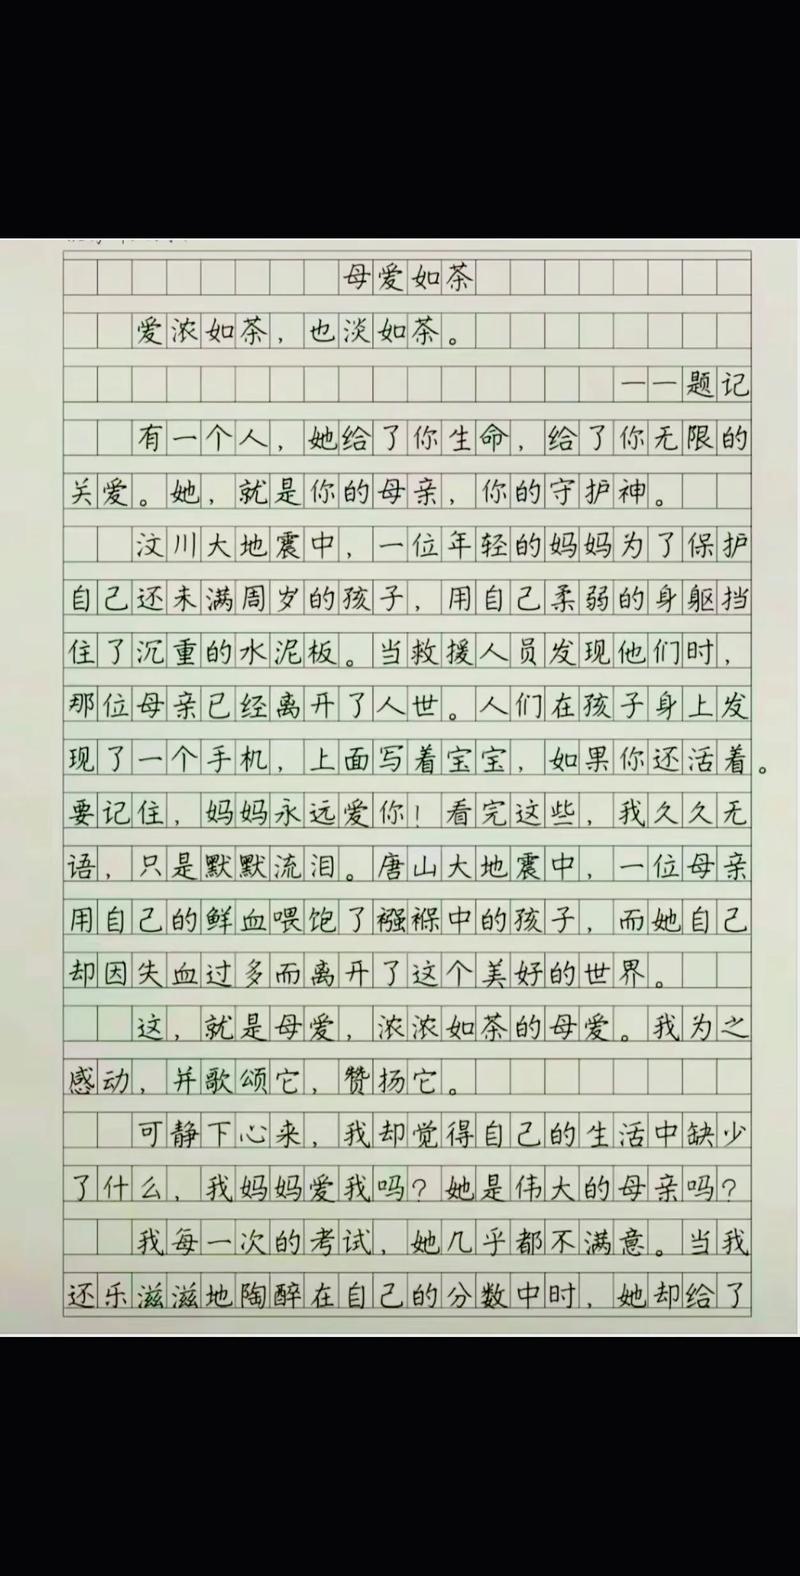 母爱如茶
爱浓如茶，也淡如茶。
——题记
有一个人，她给了你生命，给了你无限的
关爱。她，就是你的母亲，你的守护神。
汶川大地震中，一位年轻的妈妈为了保护
自己还未满周岁的孩子，用自己柔弱的身躯挡
住了沉重的水泥板。当救援人员发现他们时，
那位母亲已经离开了人世。人们在孩子身上发
现了一个手机，上面写着宝宝，如果你还活着。
要记住，妈妈永远爱你！看完这些，我久久无
语，只是默默流泪。唐山大地震中，一位母亲
用自己的鲜血喂饱了襁褓中的孩子，而她自己
却因失血过多而离开了这个美好的世界。
这，就是母爱，浓浓如茶的母爱。我为之
感动，并歌颂它，赞扬它。
可静下心来，我却觉得自己的生活中缺少
了什么，我妈妈爱我吗？她是伟大的母亲吗？
我每一次的考试，她几乎都不满意。当我
还乐滋滋地陶醉在自己的分数中时，她却给了